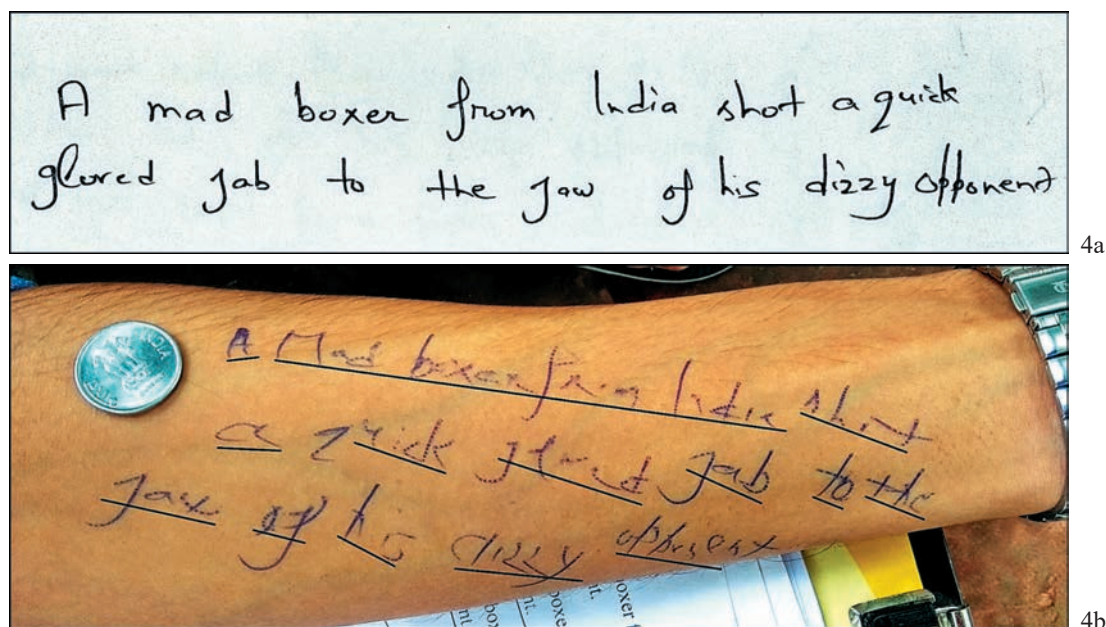 A mad boxer from India short a quick
gloved jab to the jaw of his dizzy opponent
4a
A Mad boxer from India short
a quick gloved jab to the
jaw of his dizzy opponent
INDIA
4b